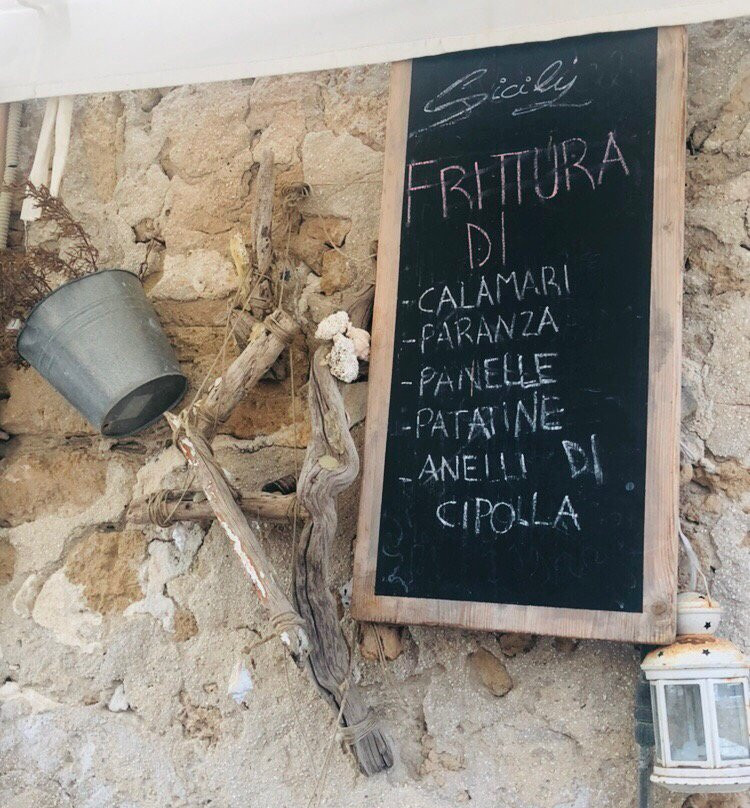 Sicily
FRITTURA
DI
-CALAMARI
-PARANZA
-PANELLE
-PATATINE
-ANELLI DI
CIPOLLA